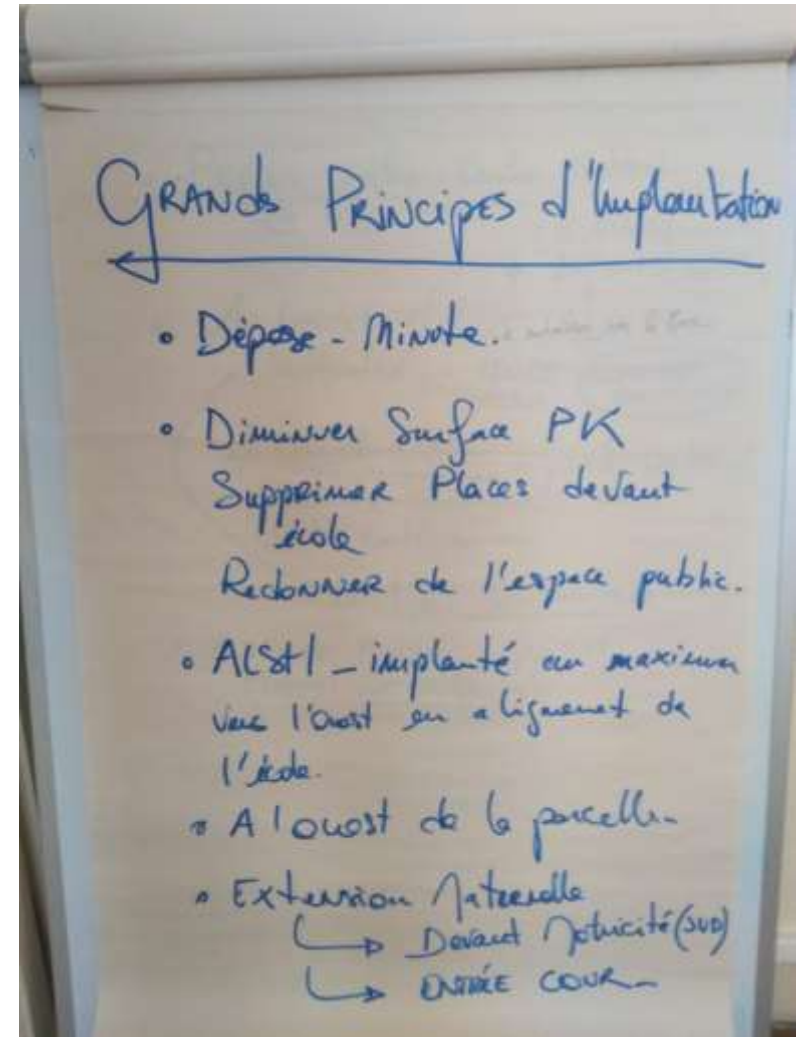 GRANDS PRINCIPES d'Implantation
• Dépose - Minute.
• Diminuer Surface PK
Supprimer Places devant
école
Redonner de l'espace public.
• ALSH - implanté au maximum
vers l'ouest en alignement de
l'école.
• A l'ouest de la parcelle
• Extension Maternelle
↳ Devant Motricité (SUD)
↳ ENTRÉE COUR